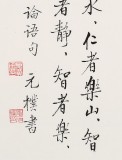 水、仁者樂山、智
者靜、智者樂、
论语句 元樸書